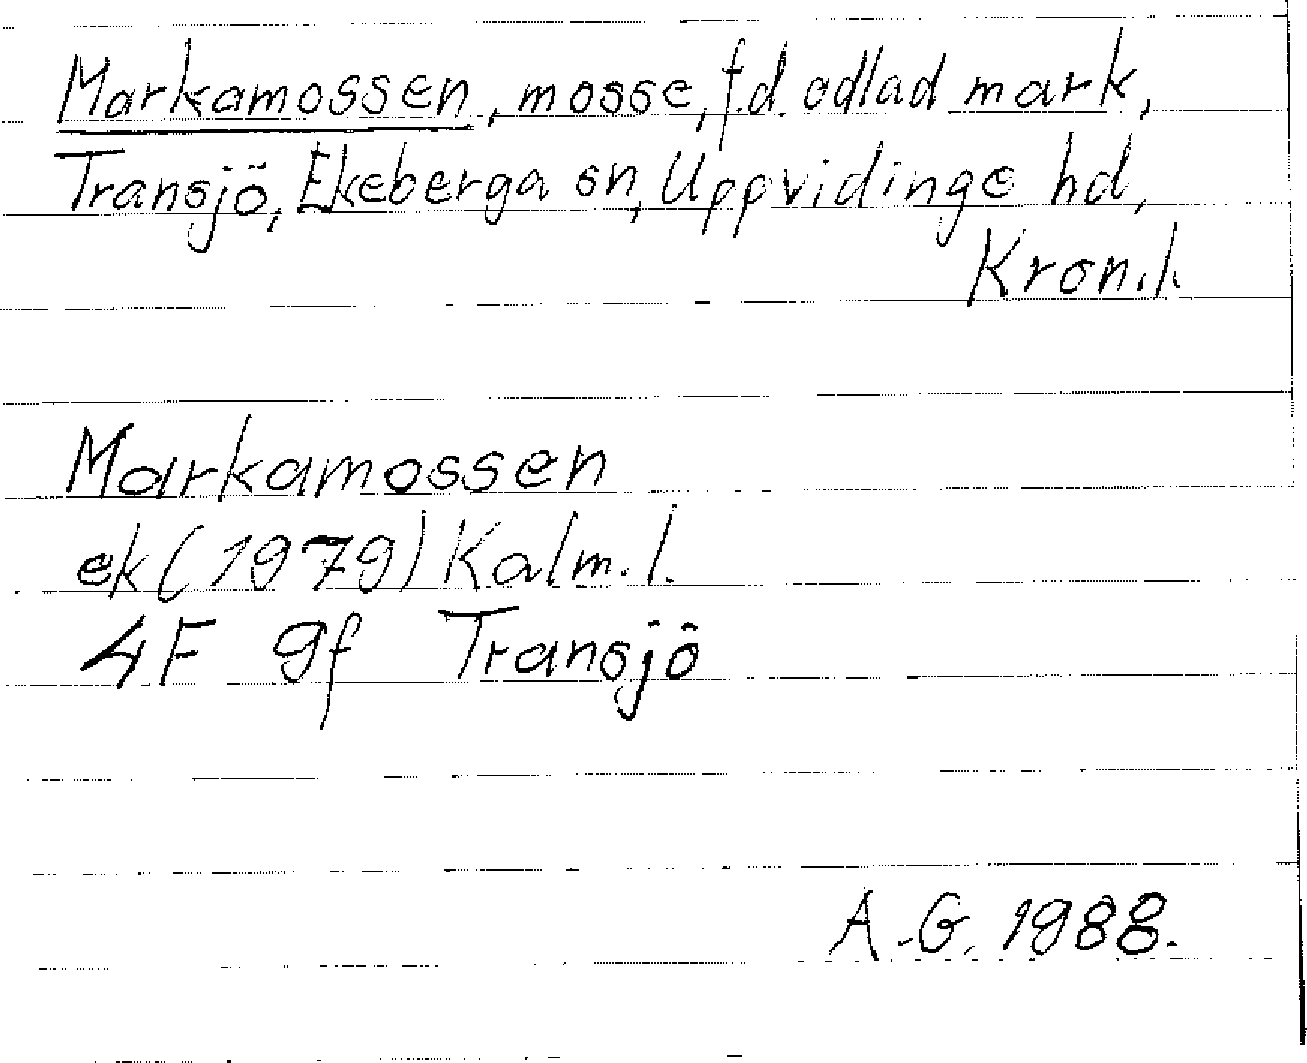 Markamossen, mosse, f.d. odlad mark,
Transjö, Ekeberga sn, Uppvidinge hd,
Kron.l.
Markamossen
ek (1979) Kalm.l.
4F 9f Transjö
A.G. 1988.